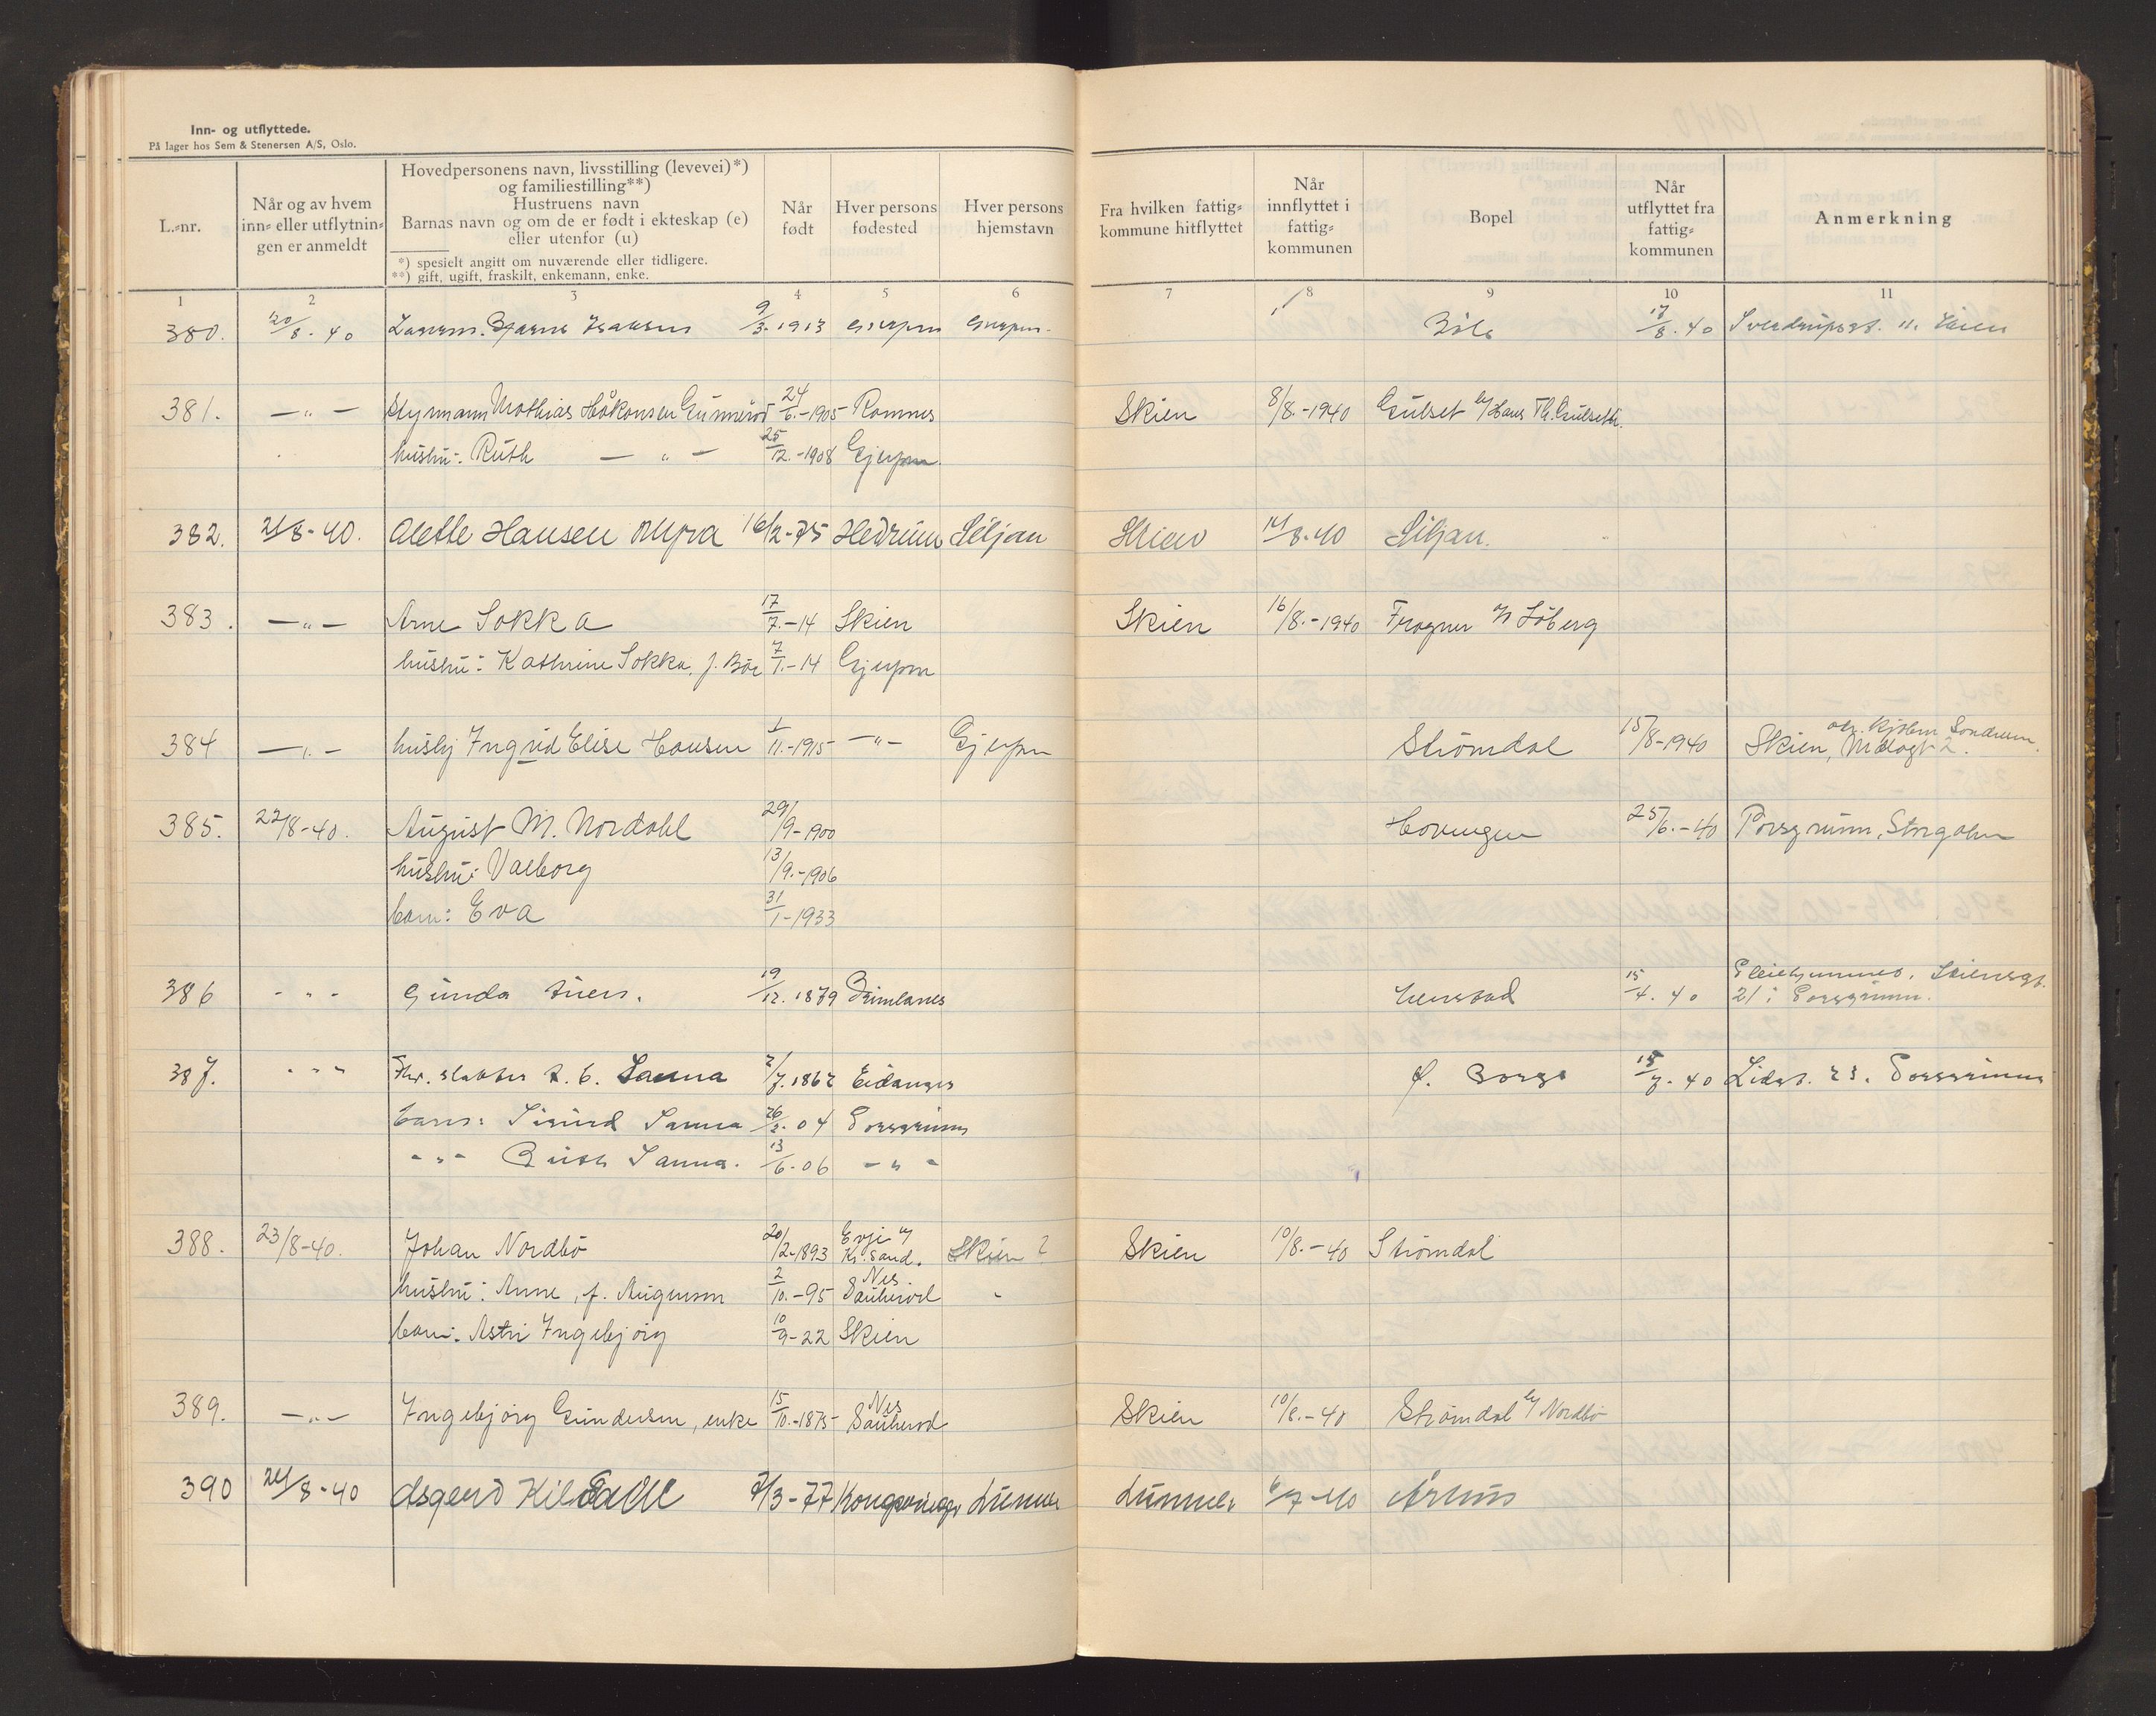 Inn- og utflyttede.
På lager hos Sem & Stenersen A/S, Oslo.
L.-nr.
Når og av hvem inn- eller utflytningen er anmeldt
Hovedpersonens navn, livsstilling (levevei)*)
og familiestilling**)
Hustruens navn
Barnas navn og om de er født i ekteskap (e)
eller utenfor (u)
*) spesielt angitt om nuværende eller tidligere.
**) gift, ugift, fraskilt, enkemann, enke.
Når født
Hver persons fødested
Hver persons hjemstavn
Fra hvilken fattigkommune hitflyttet
Når innflyttet i fattigkommunen
Bopel
Når utflyttet fra fattigkommunen
Anmerkning
1 2 3 4 5 6 7 8 9 10 11
380. 20/8-40 Bjarne Isaksen 9/3.1913 Gjerpen Gjerpen Bøle 17/8.40 Sverdrupsgt. 11. Skien
381. —„— Styrmann Mathias Håkonsen Gunnerød 24/6.-1905 Romnes Skien 8/8.-1940 Gulset b/ Hans Th. Gulseth.
hustru: Ruth —„— 25/12.-1908 Gjerpen.
382. 21/8-40. Alette Hansen Myra 16/2-75 Hedrum Siljan Skien 14/8-40 Siljan.
383. —„— Arne Sokka 17/7.-14 Skien Skien 16/8.-1940 Frogner Søberg
hustru: Kathrine Sokka, f. Bøe 7/1.-14 Gjerpen
384 —„— hushj Ingrid Elise Hansen 1/11.-1915 —„— Gjerpen Strømdal 15/8-1940 Skien,
385. 22/8-40. August M. Nordahl 29/9-1900 Hovengen 25/6.-40 Porsgrunn, Storgaten
hustru: Valborg 13/9.-1906
barn: Eva 31/1-1933
386 -„- Gunda 19/12.1879 Brunlanes 15/4.40 Skiensgt.
21 i Porsgrunn.
387. -„- Fhv. slakter Sanna 2/7.1862 Eidanger Ø. Borge 15/7.40 23. Porsgrunn
barn: Sigurd Sanna 26/2.04 Porsgrunn
-„- Ruth Sanna. 13/6.06 -„-
388. 23/8-40. Johan Nordbø 20/2-1893 Evje v/ Kr.sand. Skien ? Skien 10/8.-40 Strømdal
hustru: Anne, f. 2/10.-95 Nes Sauherad
barn: Astri Ingebjørg 10/9-22 Skien
389. —„— Ingebjørg Gundersen, enke 15/10.-1875 Nes Sauherad Skien 10/8.-40 Strømdal b/ Nordbø
390 24/8-40 Asgerd 7/3-77 Kongsvinger Lunner Lunner 6/7-40 Århus